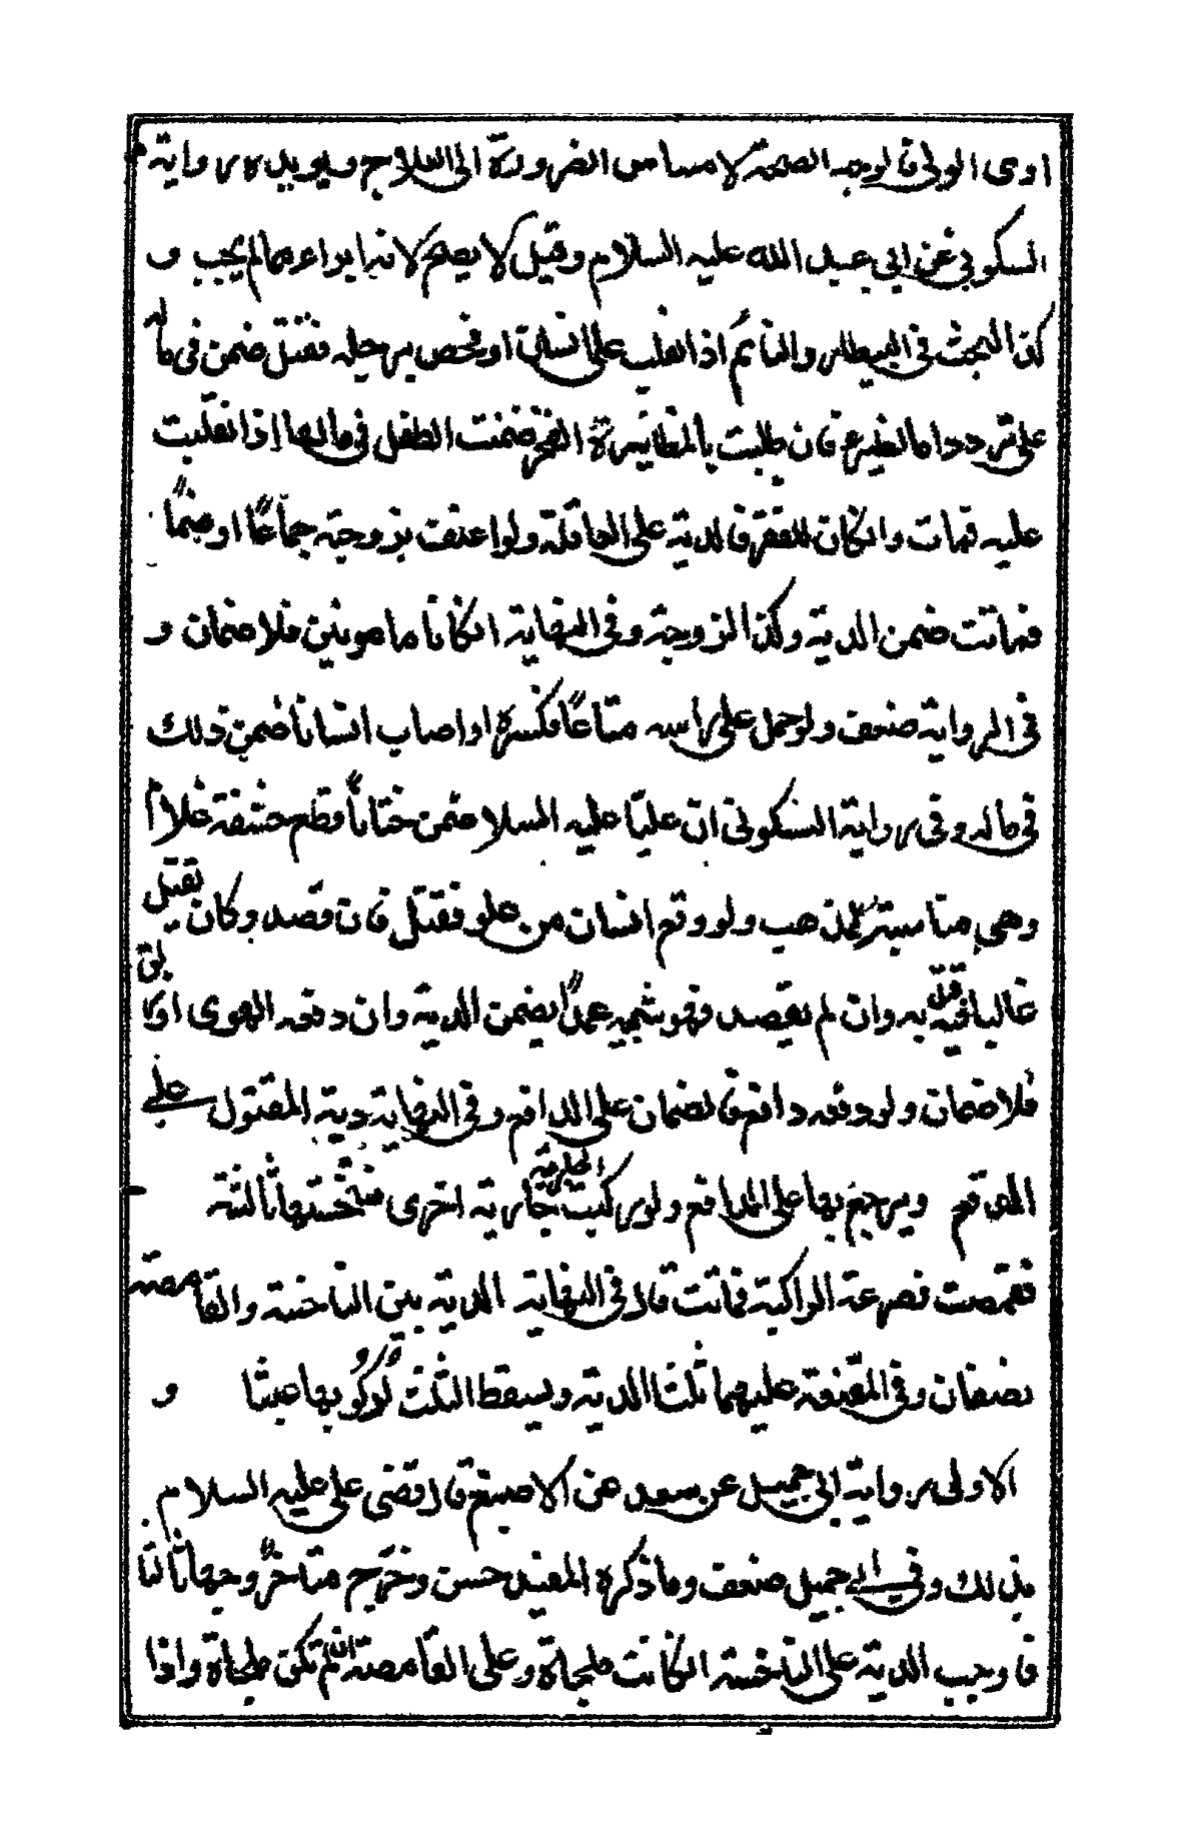 او من الولي فالوجه الصحة لامساس الضرورة الى العلاج ويؤيده رواية
السكوني عن ابي عبد الله عليه السلام وقيل لا يصح لانه ابراء مما لم يجب و
كذا البحث في البيطار والنائم اذا انقلب على انسان او فحص برجله فقتل ضمن في ماله
على تردد اما الظئر فان طلبت بالمظائرة الفخر ضمنت الطفل في مالها اذا انقلبت
عليه فمات وان كان للفقر فالدية على العاقلة ولو اعنف بزوجته جماعًا او ضمًا
فماتت ضمن الدية وكذا الزوجة وفي النهاية ان كانا مامونين فلا ضمان و
في الرواية ضعف ولو حمل على راسه متاعًا فكسره او اصاب انسانا ضمن ذلك
في ماله وفي رواية السكوني ان عليًا عليه السلام ضمن ختانًا قطع حشفة غلام
وهي مناسبة للمذهب ولو وقع انسان من علو فقتل فان قصد وكان يقتل
غالبا قتل به وان لم يقصد فهو شبيه عمدًا يضمن الدية وان دفعه الهوى او زلق
فلا ضمان ولو دفعه دافع فالضمان على الدافع وفي النهاية دية المقتول على
المدفوع ويرجع بها على الدافع ولو ركبت جارية اخرى فنخستها ثالثة
فقمصت فصرعت الراكبة فماتت قال في النهاية الدية بين الناخسة والقامصة
نصفان وفي المقنعة عليهما ثلثا الدية ويسقط الثلث لركوبها عبثا و
الاولى رواية ابي جميل عن سعد عن الاصبغ قال قضى علي عليه السلام
بذلك وفي ابي جميل ضعف وما ذكره المفيد حسن وخرج متاخر وجها ثالثا
فاوجب الدية على الناخسة ان كانت ملجاة وعلى القامصة ان لم تكن ملجاة واذا